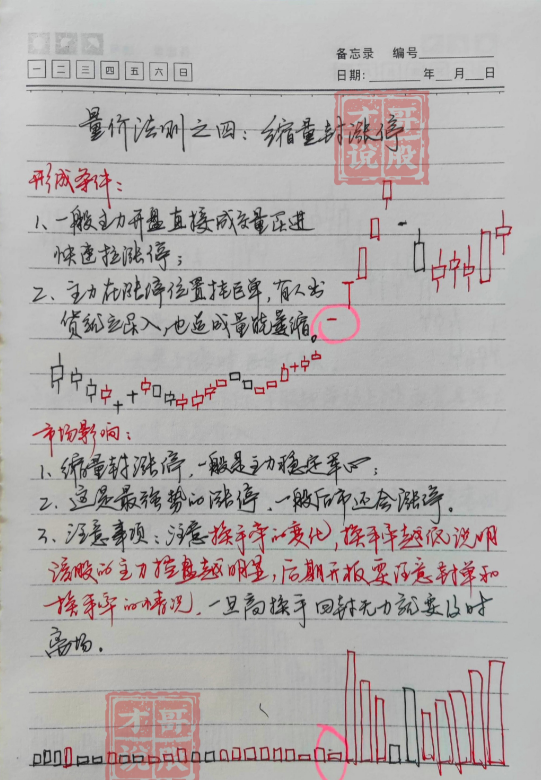 备忘录 编号
一 二 三 四 五 六 日
日期: 年 月 日
量价法则之四：缩量封涨停
才哥
说股
形成条件：
1、一般主力开盘直接成交量足进
快速拉涨停；
2、主力在涨停位置挂巨单，有人出
货就立足入，也造成量能萎缩。
市场影响：
1、缩量封涨停，一般是主力稳定军心；
2、这是最强势的涨停，一般后市还会涨停。
3、注意事项：注意换手率的变化，换手率越低说明
该股的主力控盘越明显，后期开板要注意封单和
换手率的情况，一旦高换手回封无力就要及时
离场。
才哥
说股